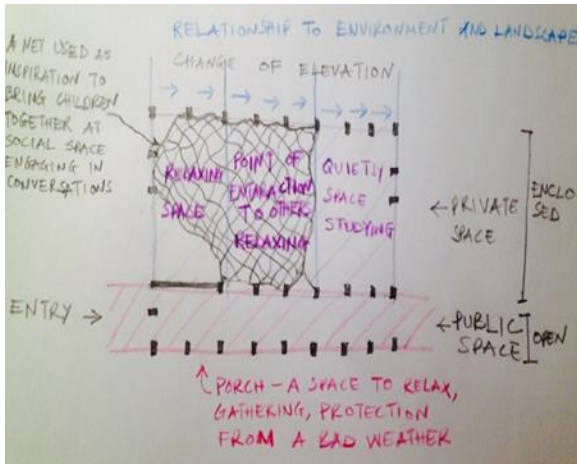 RELATIONSHIP TO ENVIRONMENT AND LANDSCAPE
CHANGE OF ELEVATION
A NET USED AS
INSPIRATION TO
BRING CHILDREN
TOGETHER AT
SOCIAL SPACE
ENGAGING IN
CONVERSATIONS
RELAXING
SPACE
POINT OF
ENTARACTION
TO OTHERS
RELAXING
QUIETLY
SPACE
STUDYING
PRIVATE
SPACE
ENCLO
SED
ENTRY
PUBLIC
SPACE
OPEN
PORCH - A SPACE TO RELAX,
GATHERING, PROTECTION
FROM A BAD WEATHER